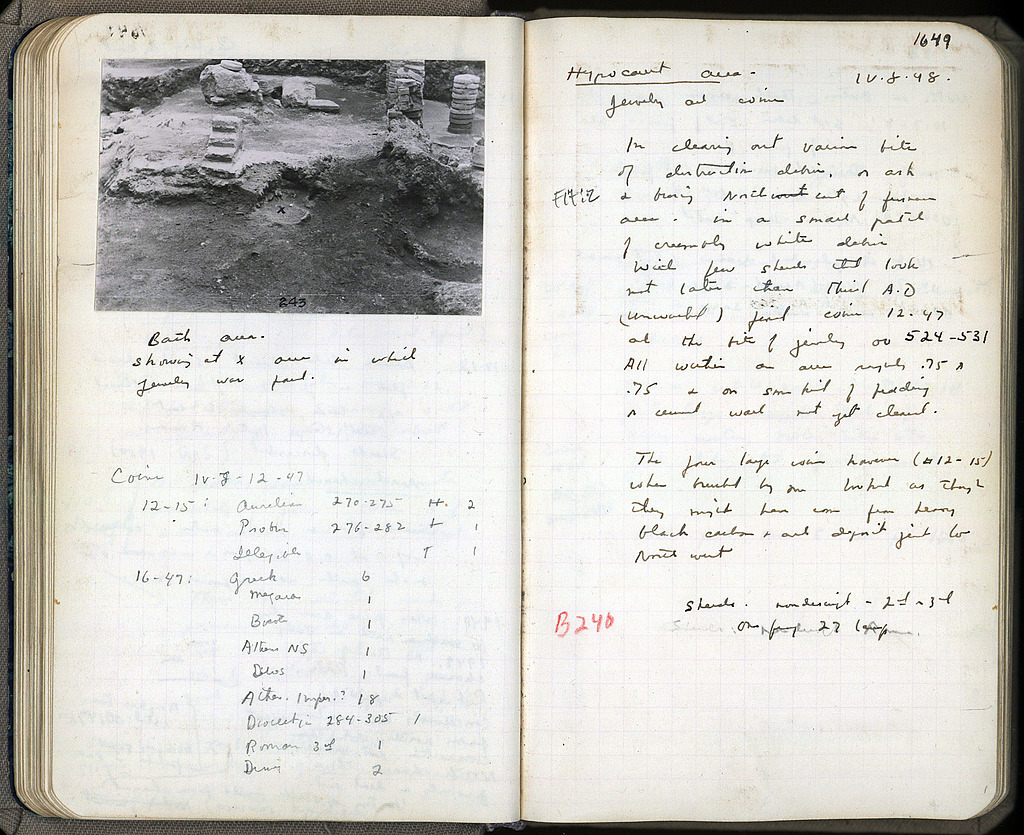 243
Bath area.
showing at x area in which
jewelry was found.
Coins IV-8-12-47
12-15: Aurelian 270-275 H. 2
Probus 276-282 t 1
Illegible T 1
16-47: Greek 6
Megara 1
1
Athens NS 1
Delos 1
Athen. Imper.? 18
284-305 1
Roman 3rd 1
2
1649
Hypocaust area. IV.8.48.
Jewelry and coins
In clearing out various bits
of destruction debris, or ash
of furnace
area. in a small patch
of crumbly white debris
with few sherds look
not later than third A.D
(unwashed) found coins 12-47
and the bits of jewelry 524-531
All within an area roughly .75 x
.75 & on some kind of
cement not yet cleared.
The four large coins however (#12-15)
when by one looked as though
they might have come from heavy
black carbon & ash deposit just to
North west
B240
Sherds. nondescript - 2nd - 3rd
27